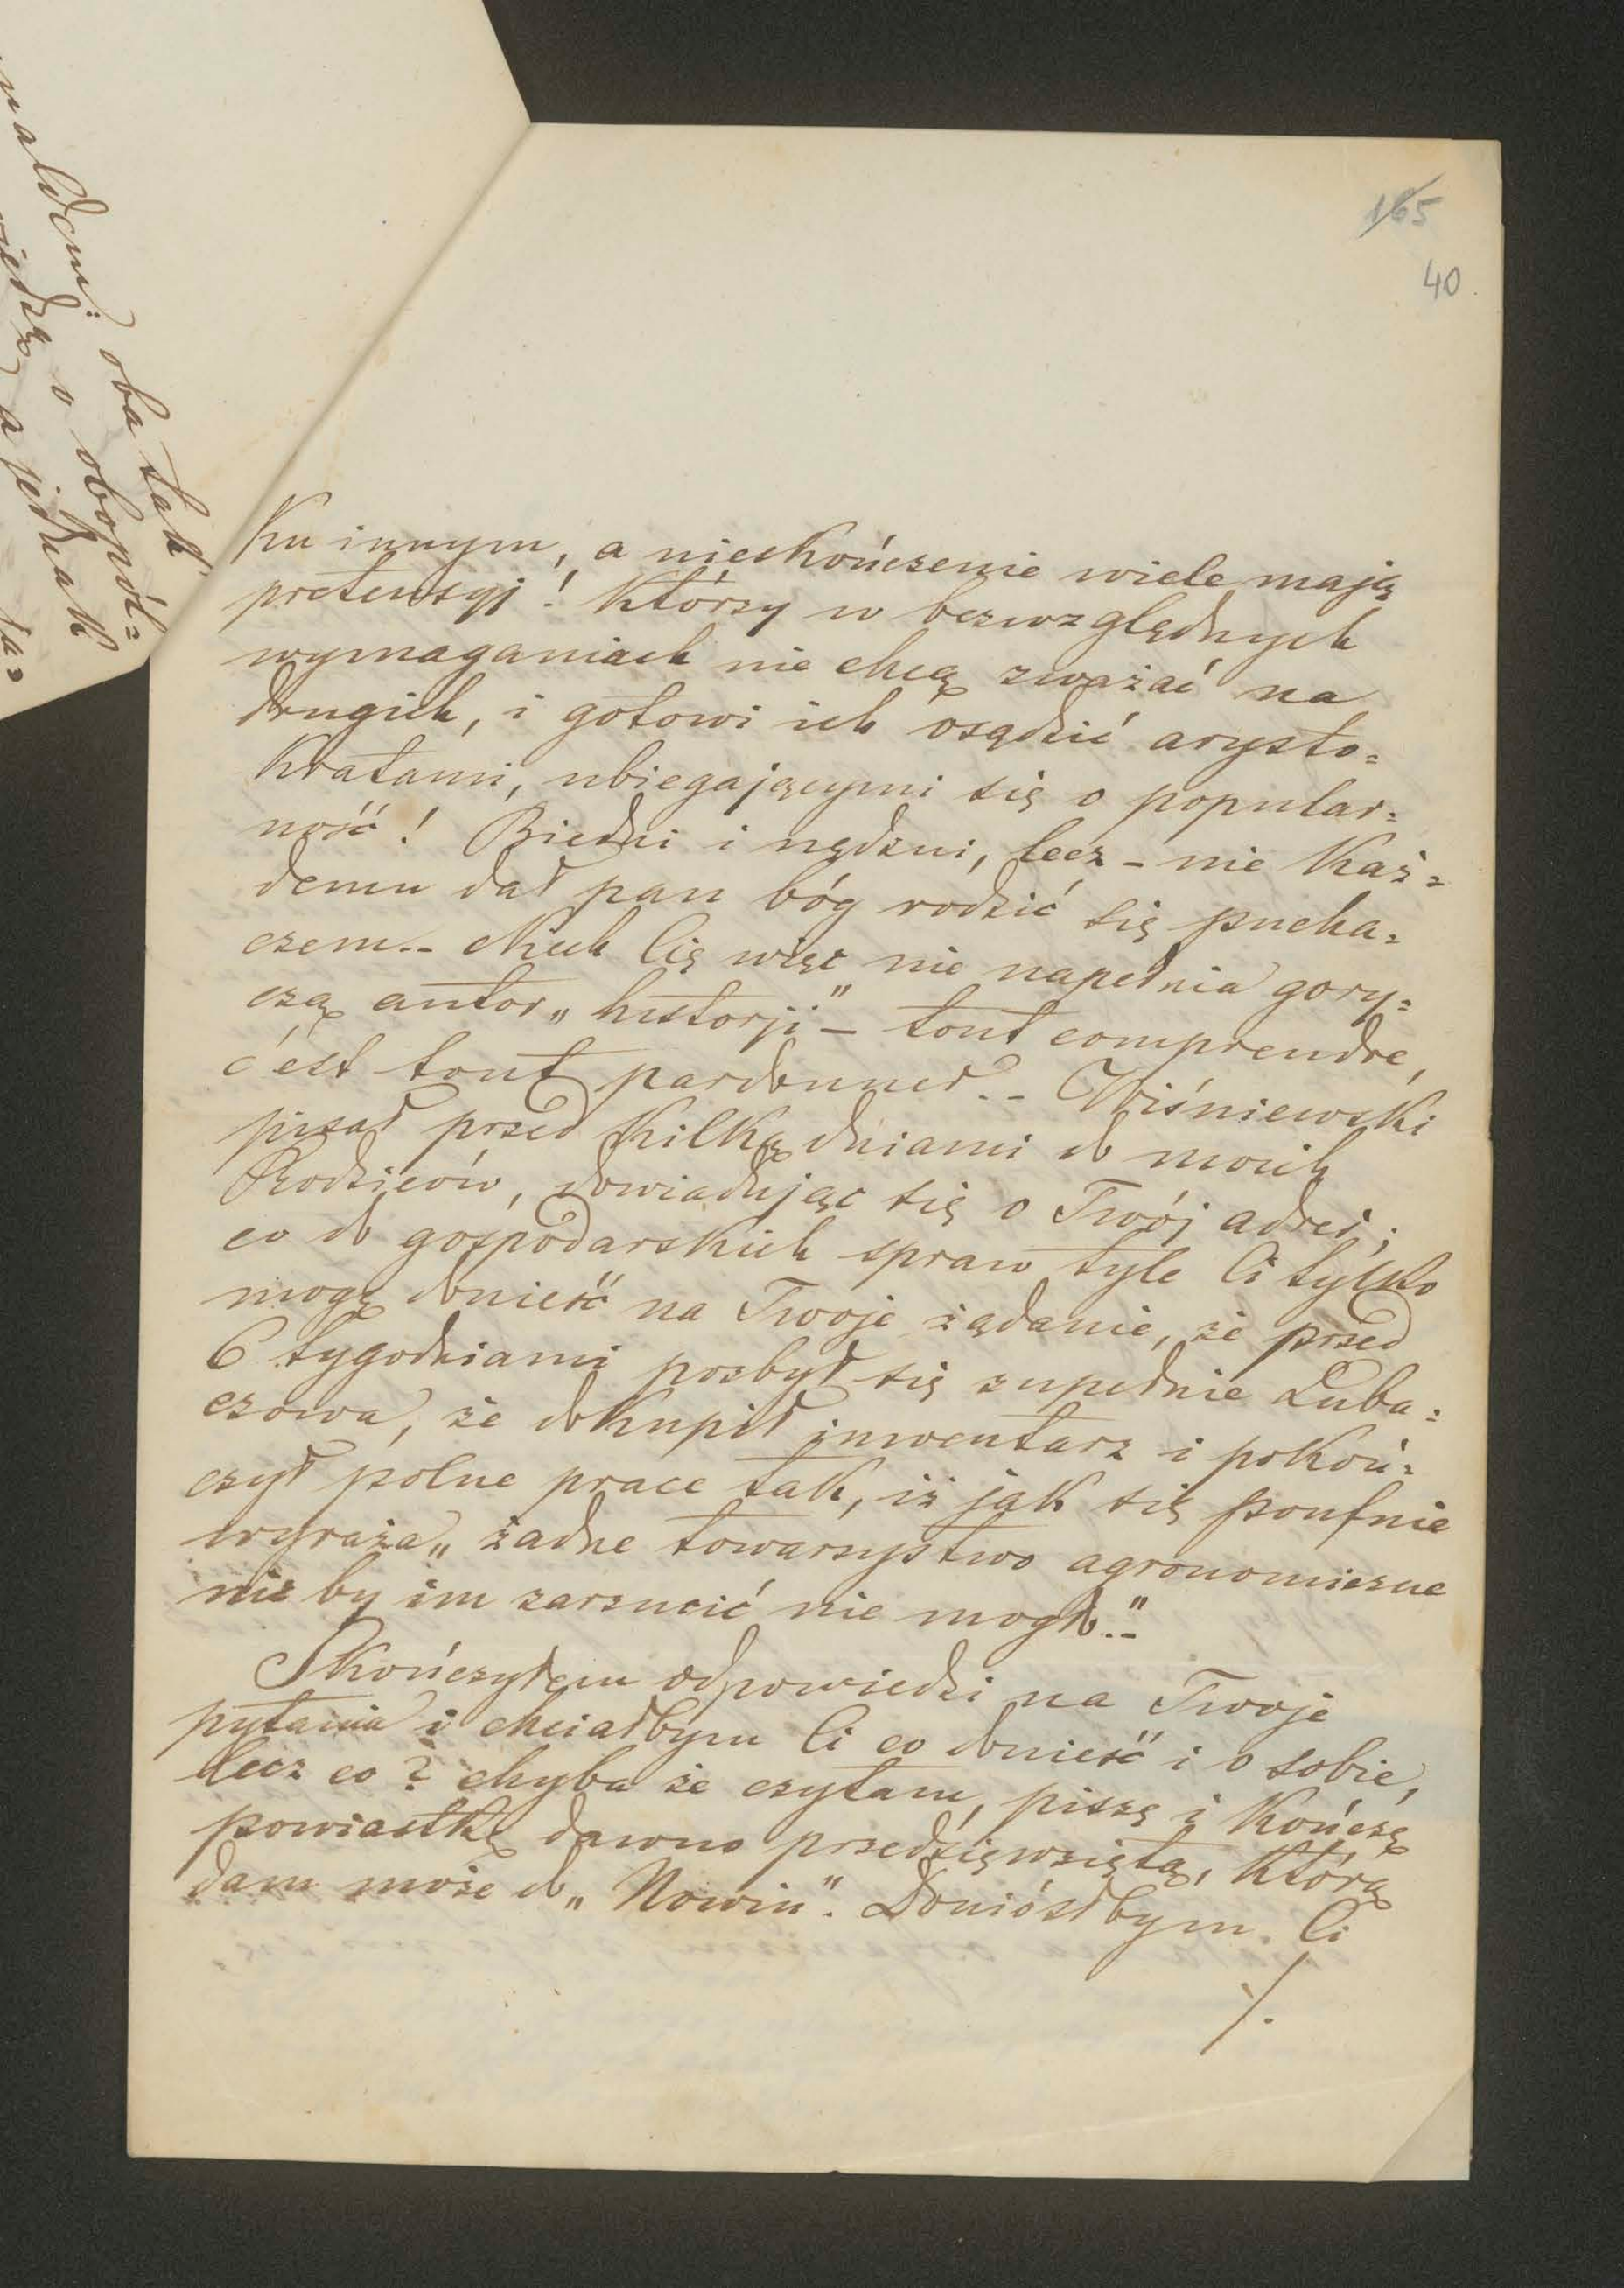 165
40
Ku innym, a nieskończenie wiele mają
pretensyj! Którzy w bezwzględnych
wymaganiach nie chcą zważać na
drugich, i gotowi ich osądzić arysto=
kratami, ubiegającymi się o popular=
ność! Biedni i nędzni, lecz – nie każ=
demu dał pan bóg rodzić się pucha=
czem.– Niech Cię więc nie napełnia gory=
czą autor „historji" – tout comprendre,
c'est tout pardonner.– Wiśniewski
pisał przed kilką dniami do moich
Rodziców, dowiadując się o Twój adres;
co do gospodarskich spraw tyle Ci tylko
mogę donieść na Twoje żądanie, że przed
6 tygodniami pozbył się zupełnie Luba=
czowa, że dokupił inwentarz i pokoń=
czył polne prace tak, iż jak się poufnie
wyraża „żadne towarzystwo agronomiczne
nic by im zarzucić nie mogło."–
Skończyłem odpowiedzi na Twoje
pytania i chciałbym Ci co donieść i o sobie,
lecz co? chyba że czytam, piszę i kończę
powiastkę dawno przedsięwziętą, którą
dam może do „Nowin". Doniósłbym Ci
./.
oba tak
o obopól=
a jednak